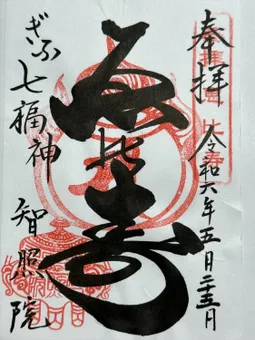 奉拝 令和六年五月二十五日
恵比寿
ぎふ七福神 智照院